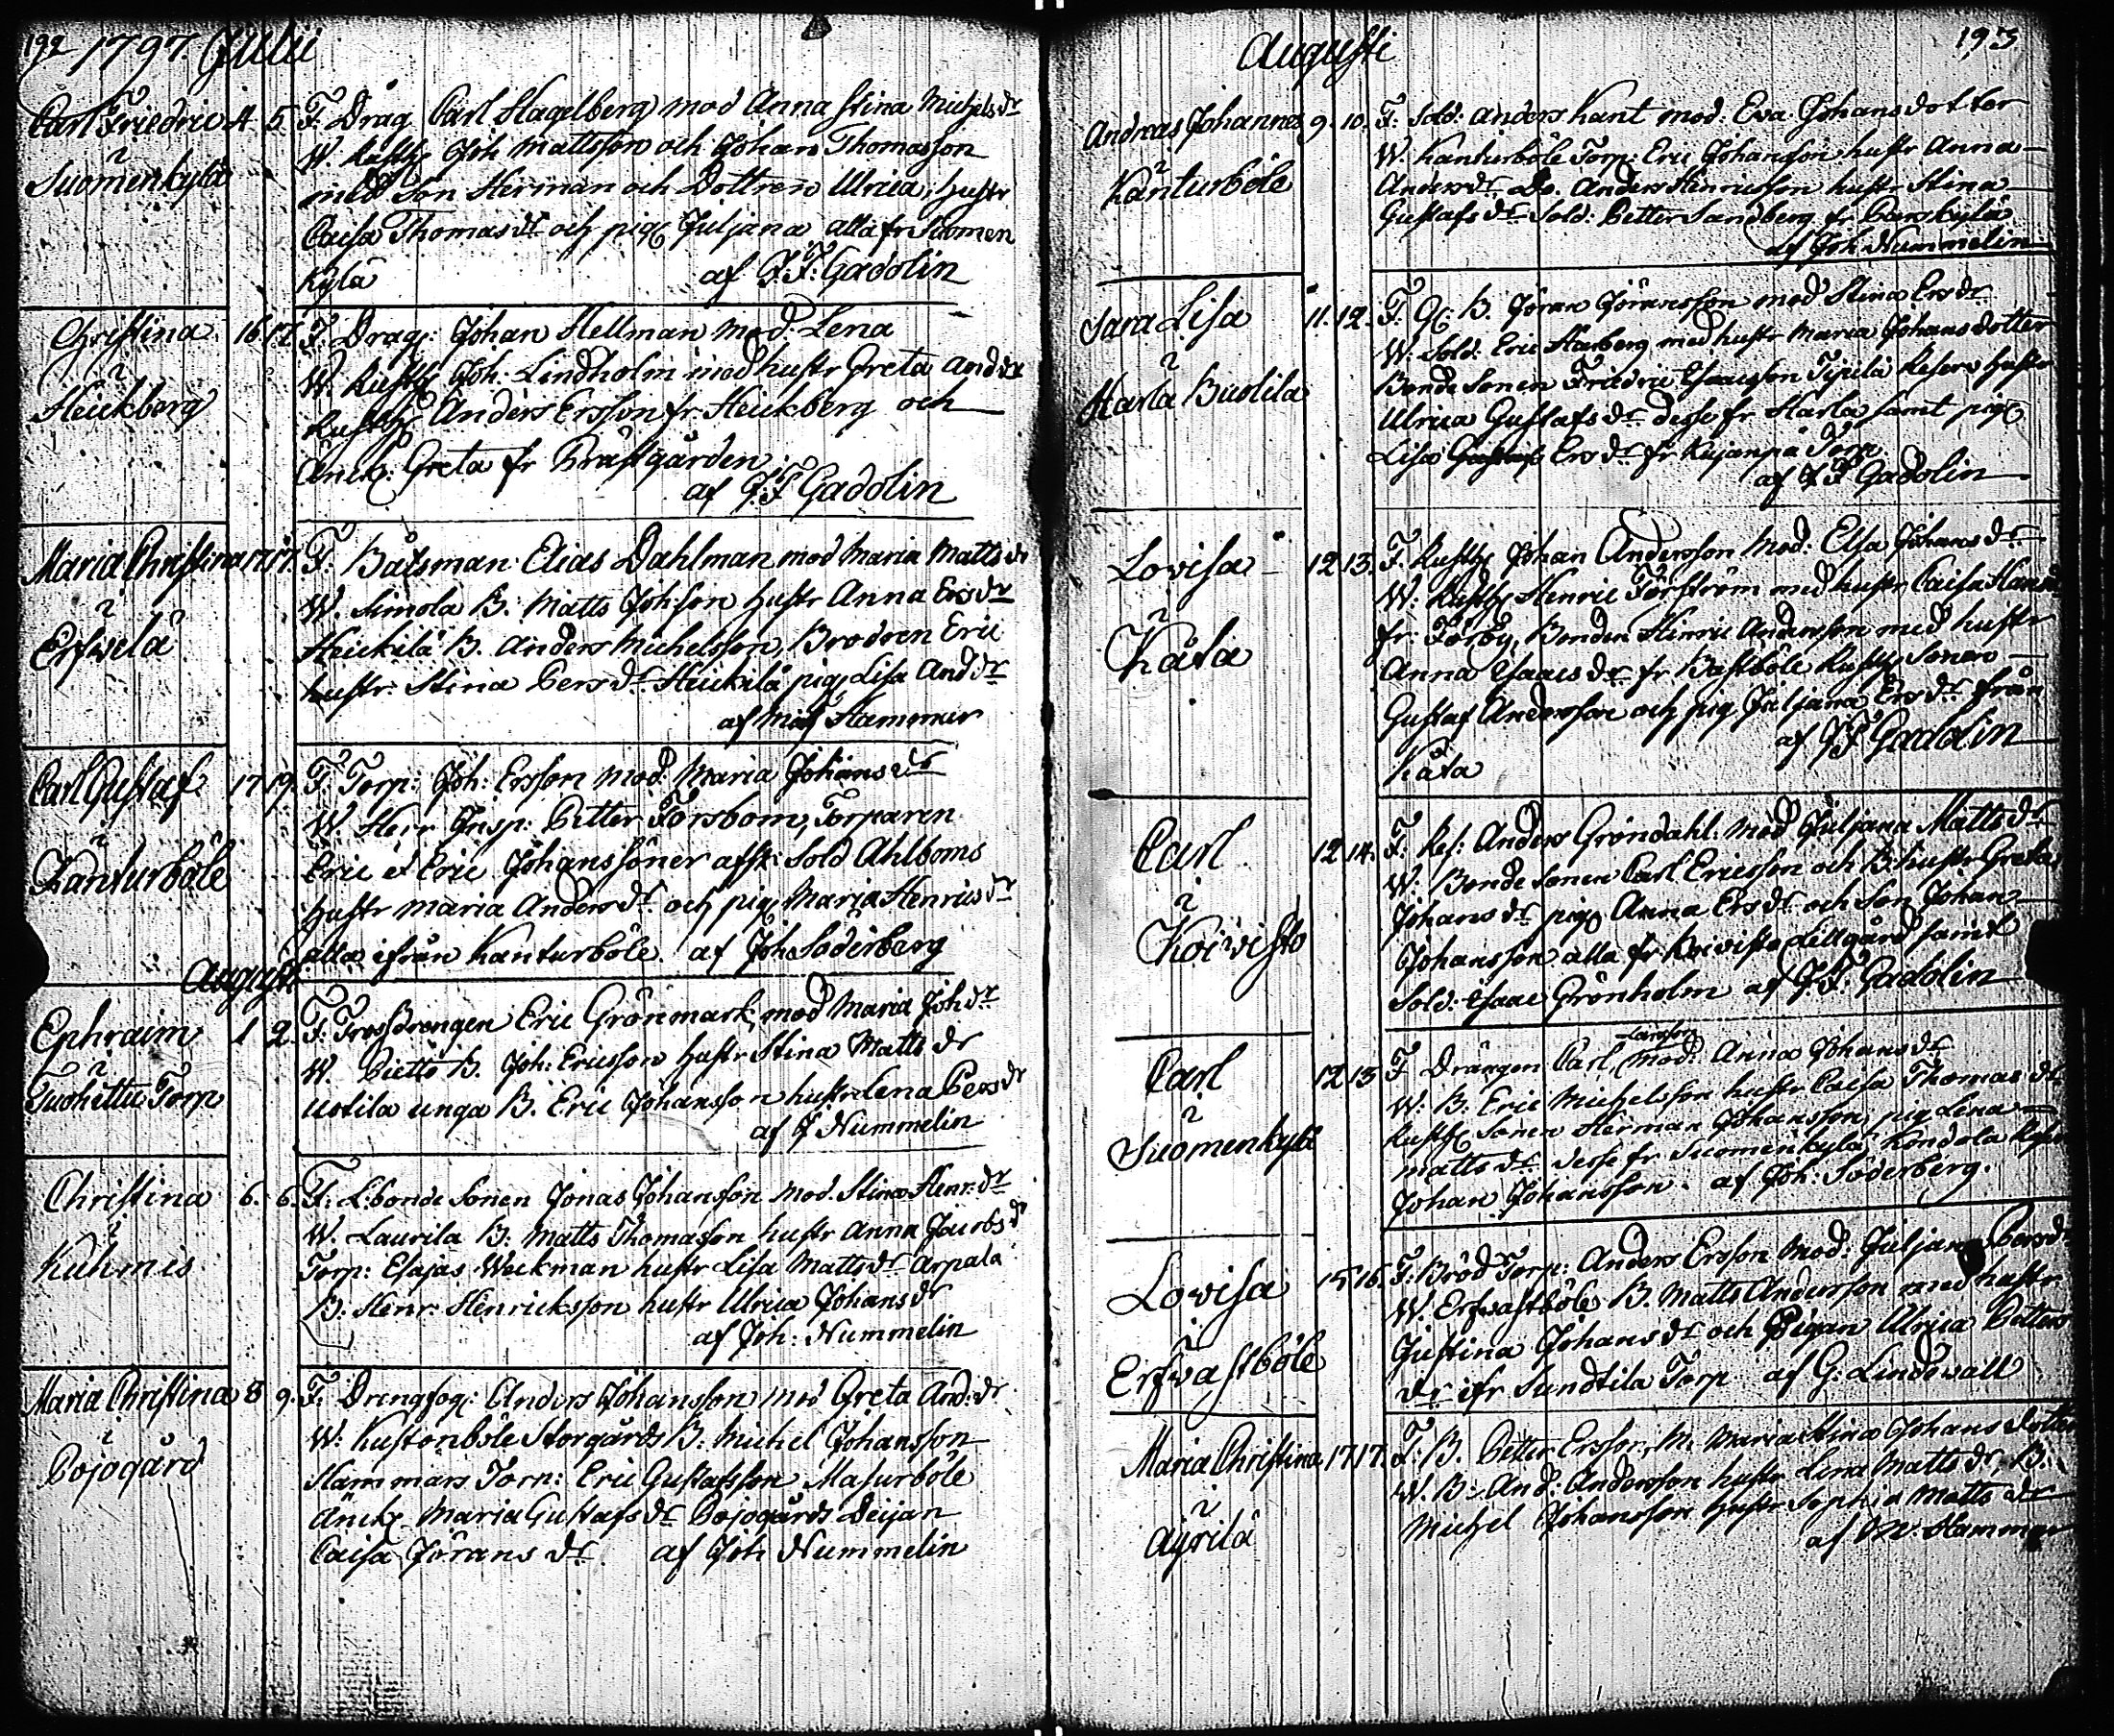 192 1797. Julii
Carl Friedric 4 5. F. Drag. Carl Hagelberg mod Anna Stina Michelsdr
i
Suomenkylä
W. Rusth. Joh Mattsson och Johan Thomasson
med Son Herman och Dottren Ulrica, hustr
Caisa Thomasdr och pig. Juljana alla fr Suomen
kylä af J.F. Gadolin
Christina 16 17. F. Drag: Johan Hellman mod. Lena
i
Heickberg
W. Rusth. Joh: Lindholm med hustr Greta Anddr
Rusth. Anders Ersson fr. Heickberg och
Änck. Greta fr Prästgården.
af J.F Gadolin
Maria Christina 17 17. F. Båtsman Elias Dahlman mod Maria Mattsdr
i
Erfwelä
W. Simola B. Matts Johsson hustr Anna Ersdr
Heickilä B. Anders Michelsson, Brodren Eric
hustr. Stina Persdr Heickilä pig. Lisa Anddr
af Hammar
Carl Gustaf 17 19. F. Torp: Joh: Ersson mod. Maria Johansdr
i
Kanturböle
W. Herr Insp: Petter Forsbom, Torparen
Eric et Eric Johanssöner afsk: Sold Ahlboms
hustr Maria Andersdr och pig. Maria Henricsdr
alla ifrån Kanturböle. af Joh Söderberg
Augusti
Ephraim 1 2. F. Trossdrengen Eric Grönmark, mod Maria Johdr
i
Suohettu Torp
W. Pietto B. Joh: Ericsson hustr Stina Matts dr
Uotila unga B. Eric Johansson hustr Lena Persdr
af J Nummelin
Christina 6. 6. F. L: bonde Sonen Jonas Johansson mod. Stina Henr.dr
i
Kuhmis
W. Laurila B: Matts Thomasson hustr Anna Jacobsdr
Torp: Esajas Weckman hustr Lisa Mattsdr Arpala
B: Henr: Henricksson hustr Ulrica Johansdr
af Joh: Nummelin
Maria Christina 8 9. F. Drengfog: Anders Johansson mod Greta And.dr
i
Pojogård
W: Kustonböle Storgårds B: Michel Johansson
Hammars Torp: Eric Gustafsson Masurböle
Änck. Maria Gustafsdr Pojogårds Deijan
Caisa Jörans dr. af Joh Nummelin
Augusti 193
Andreas Johannes 9. 10. F: Sold: Anders Kant mod: Eva Johansdotter
i
Kanturböle
W. Kanturböle Torp: Eric Johansson hustr Anna
Andersdr Do. Anders Henricsson hustr Stina
Gustafsdr Sold: Petter Sandberg fr Perskylä
af Joh Nummelin
Sara Lisa 11. 12. F. B. Jöran Jöransson mod Stina Ersdr
i
Harla Buolila
W. Sold: Eric Harberg med hustr Maria Johansdotter
Bonde Sonen Friedric Esaicsson Reserv hustr
Ulrica Gustafsdr desse fr Harla samt pig.
Lisa Ersdr fr Kujanpä Torp
af J F Gadolin
Lovisa 12 13. F. Rusth. Johan Andersson Mod: Elsa Johansdr
i
Kåla
W: Rusth. Henric Forström med hustr Caisa Hansdr
fr: Förby, Bonden Henric Andersson med hustr
Anna Isaacsdr fr Bastböle Rusth. Sonen
Gustaf Andersson och pig Juljana Ersdr från
Kåla af J F Gadolin
Carl 12 14. F: Res: Anders Gröndahl: mod Juljana Mattsdr
i
Koivisto
W. Bonde Sonen Carl Ericsson och B. hustr Greta
Johansdr pig. Anna Ersdr och Son Johan
Johansson alla fr Koivisto Lillgård samt
Sold: Isaac Grönholm af J.F: Gadolin
Carl 12 13 F Drängen Carl Larsson mod: Anna Johansdr
i
Suomenkylä
W. B: Eric Michelsson hustr Caisa Thomasdr
Rusth. Sonen Herman Johansson, pig Lena
Mattsdr desse fr Suomenkylä Kondola
Johan Johansson. af Joh: Söderberg.
Lovisa 15 16. F: Bröd Torp: Anders Ersson mod: Juljana Persdr
i
Erfwastböle
W. Erfwastböle B. Matts Andersson med hustr
Justina Johansdr och Pigan Ulrica Petters
dr ifr Sundtila Torp af G: Lindewall
Maria Christina 17 17. F: B. Petter Ersson, M. Maria Stina Johans Dotter
i
Äyrilä
W. B: And: Andersson hustr Lena Mattsdr, B:
Michel Johansson hustr Sophia Matts dr
af M. Hammar